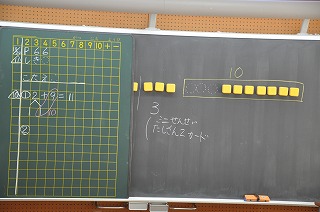 1 2 3 4 5 6 7 8 9 10 + −
P 66
しき
こたえ
① 2+9=11
②
10
3
ミニせんせい
たしざん2カード